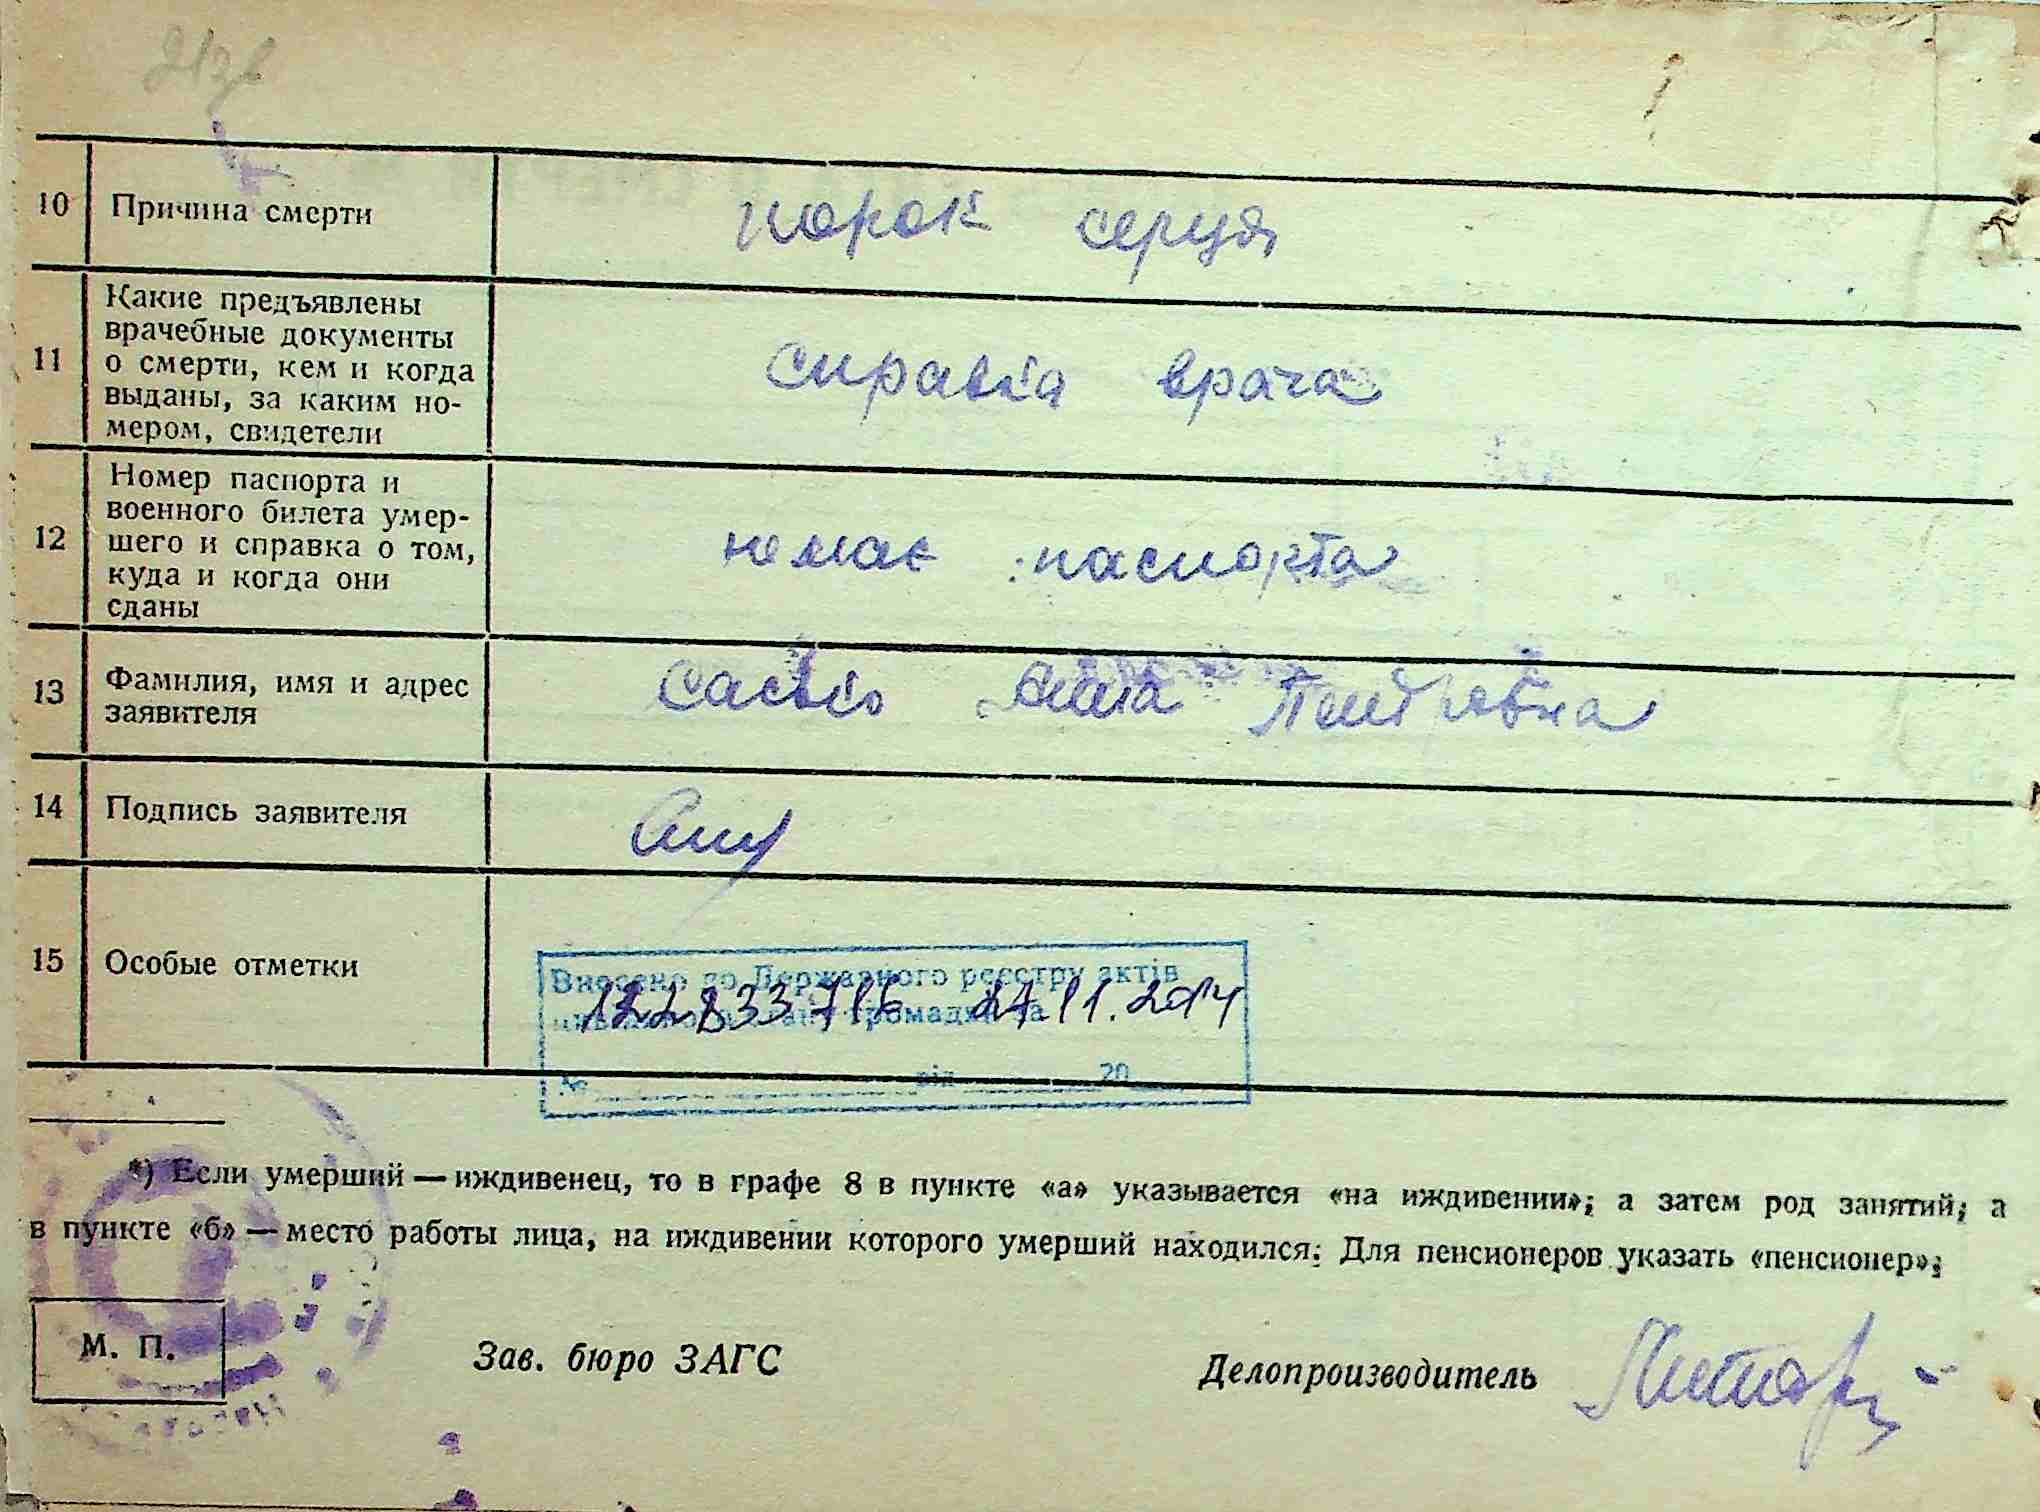 10 Причина смерти порок серця
11 Какие предъявлены
врачебные документы
о смерти, кем и когда
выданы, за каким но-
мером, свидетели
справка врача
12 Номер паспорта и
военного билета умер-
шего и справка о том,
куда и когда они
сданы
немає паспорта
13 Фамилия, имя и адрес
заявителя
Петровна
14 Подпись заявителя
15 Особые отметки
Внесено до Державного реєстру актів
громадян
27.11.2014
№ від 20
*) Если умерший — иждивенец, то в графе 8 в пункте «а» указывается «на иждивении»; а затем род занятий; а
в пункте «б» — место работы лица, на иждивении которого умерший находился. Для пенсионеров указать «пенсионер»;
М. П.
Зав. бюро ЗАГС
Делопроизводитель